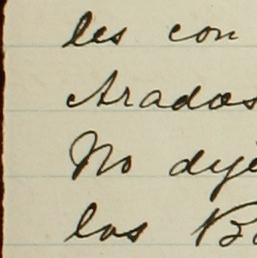 les con
Arados
No dije
los Ba